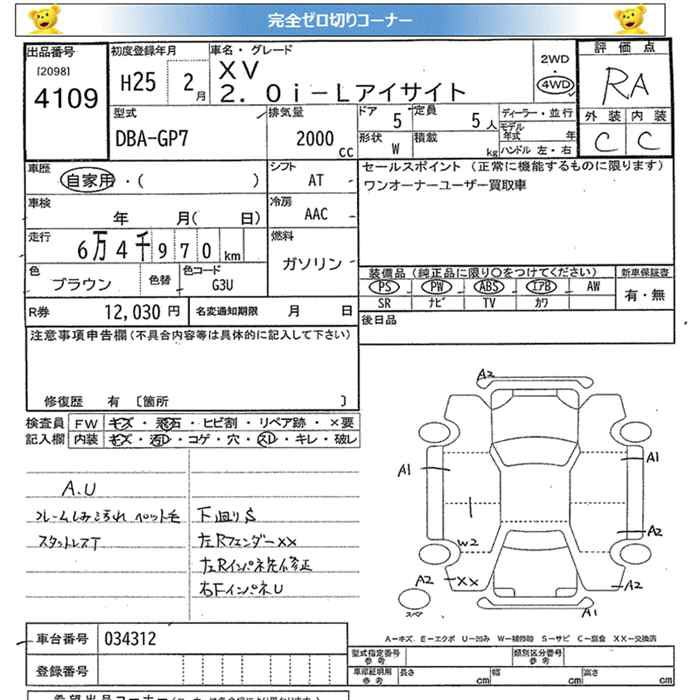 完全ゼロ切りコーナー
出品番号 初度登録年月 車名・グレード 評価点
[2098] 4109 H25 2月 XV 2WD・4WD RA
2.0i-Lアイサイト
型式 排気量 ドア 定員 ディーラー・並行 外装 内装
DBA-GP7 2000cc 5 5人 モデル年式 年 C C
形状 W 積載 kg ハンドル 左・右
車歴 自家用・( ) シフト AT セールスポイント (正常に機能するものに限ります)
ワンオーナーユーザー買取車
車検 年 月( 日) 冷房 AAC
走行 6万4千970km 燃料 ガソリン
色 ブラウン 色替 色コード G3U
装備品(純正品に限り○をつけてください) 新車保証書
PS PW ABS エアB AW 有・無
SR ナビ TV カワ
R券 12,030円 名変通知期限 月 日
後日品
注意事項申告欄(不具合内容等は具体的に記入して下さい)
修復歴 有 〔箇所 〕
検査員 FW キズ・飛石・ヒビ割・リペア跡・×要
記入欄 内装 キズ・汚レ・コゲ・穴・スレ・キレ・破レ
A.U
スタットレスT
下廻りS
左Rフェンダーxx
左Rインパネ先修正
右FインパネU
A2
A1 A1
A2
W2
A2 xx A2
スペア
A1
A-キズ、E-エクボ U-凹み W-補修跡 S-サビ C-腐食 XX-交換済
車台番号 034312
型式指定番号 参考 類別区分番号 参考
登録番号
車庫証明用 参考 長さ cm 幅 cm 高さ cm